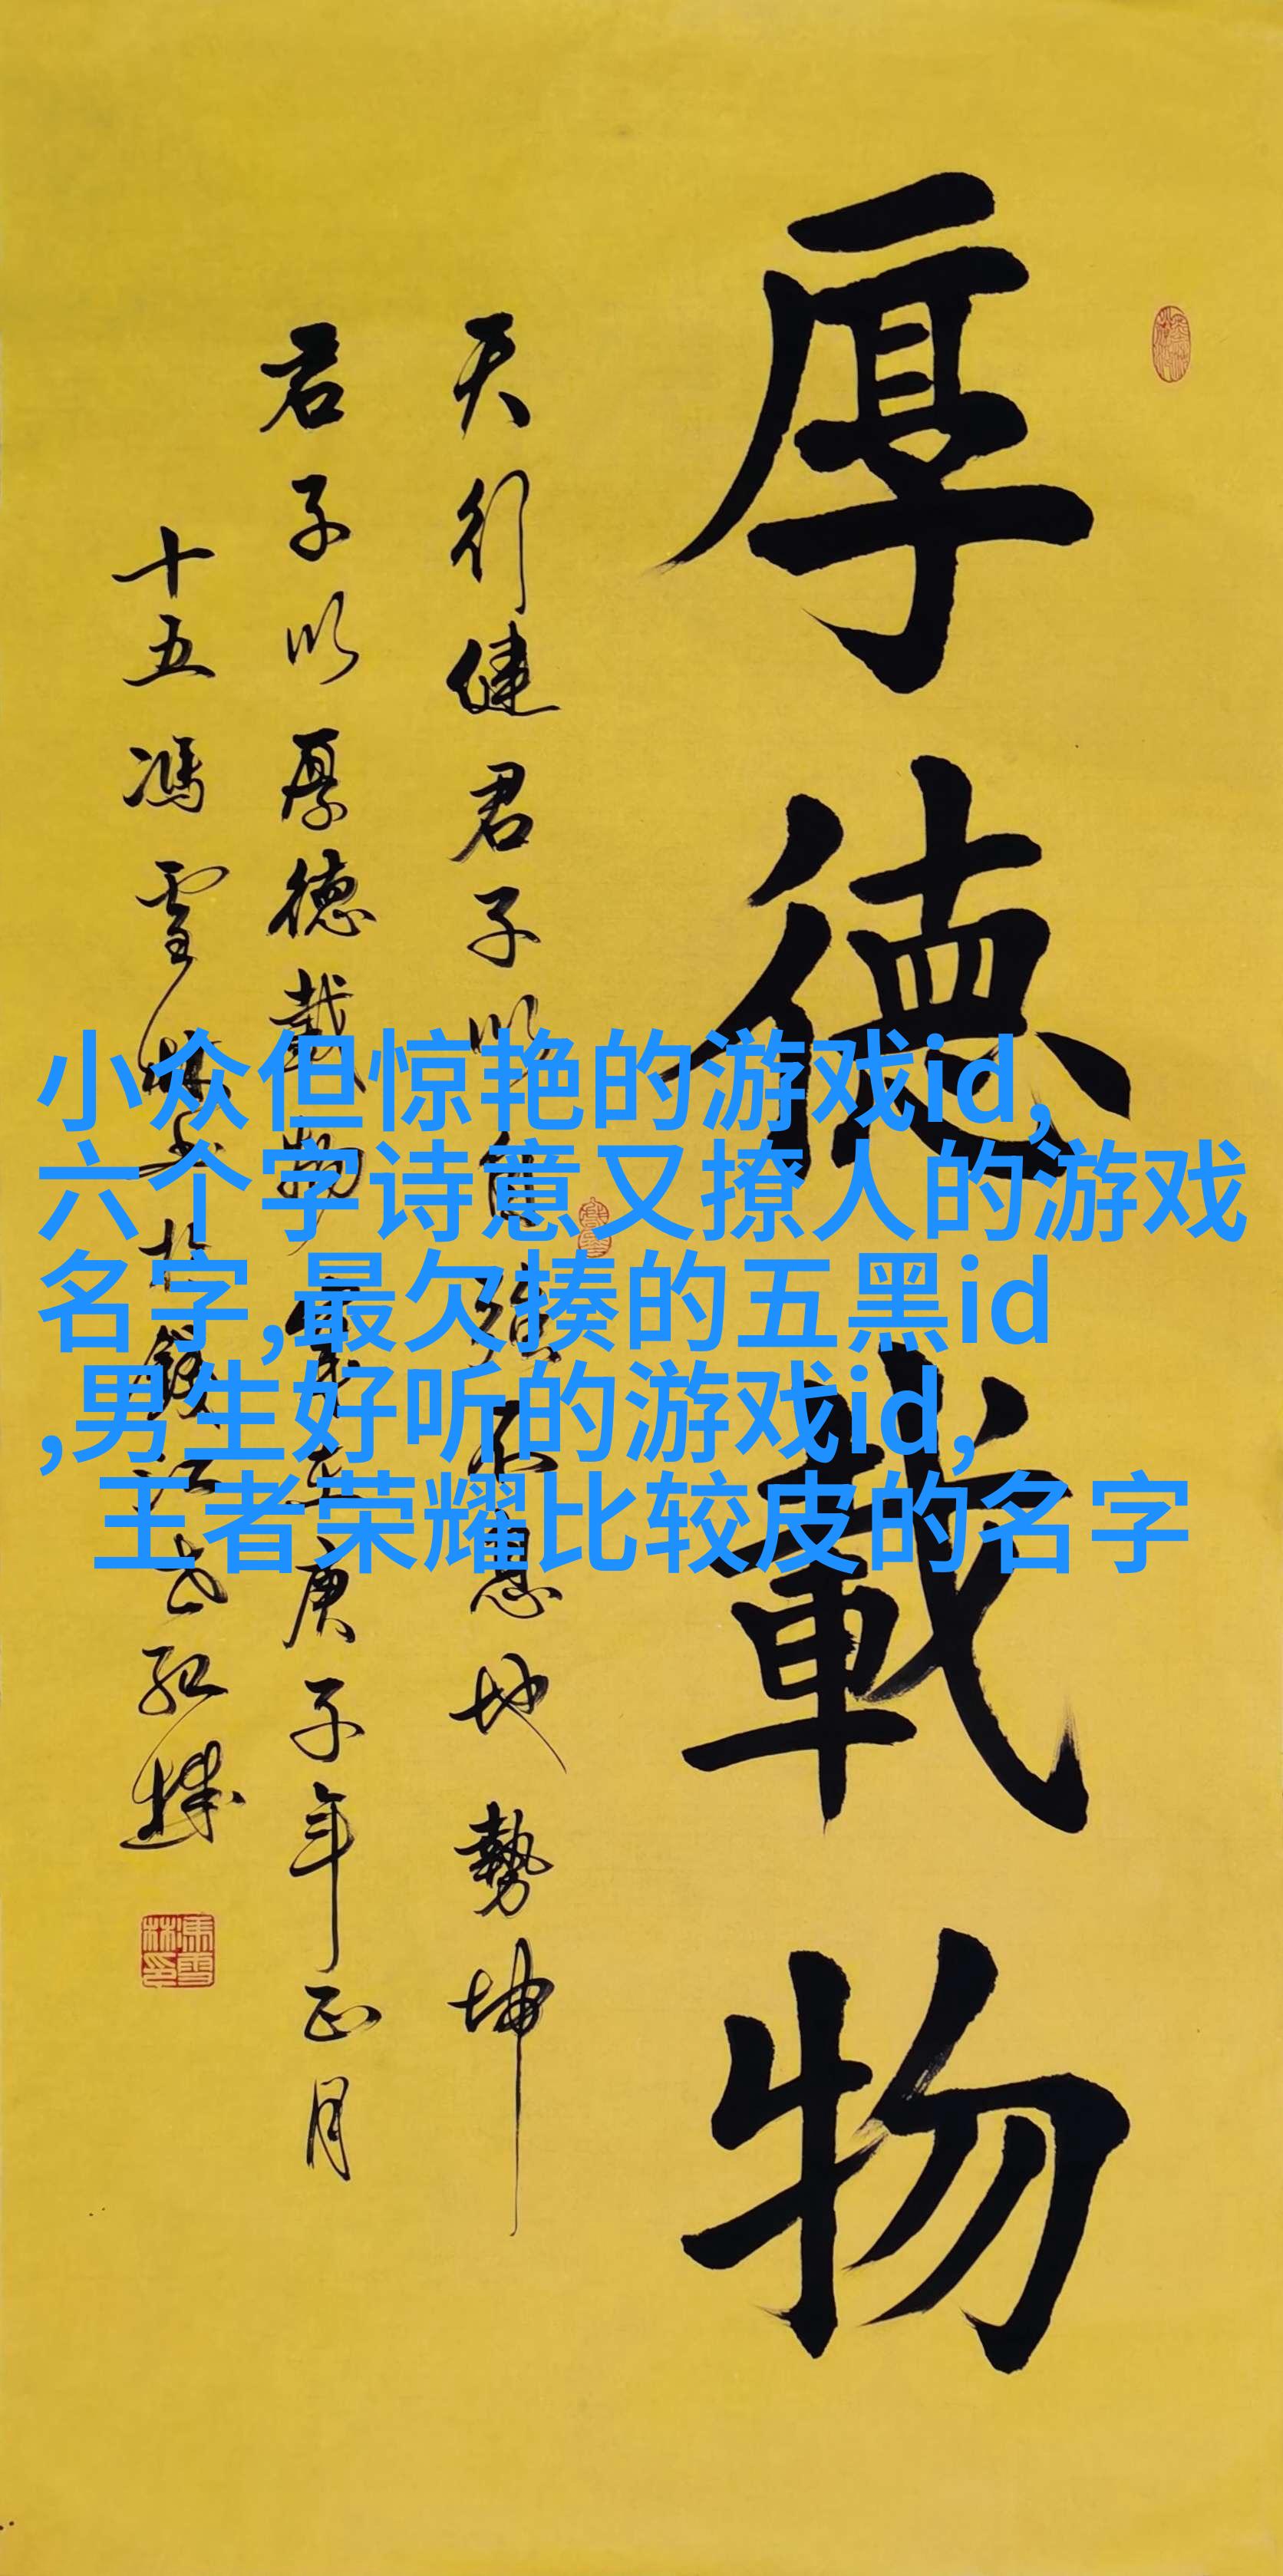 厚德載物
天行健君子以自強不息地勢坤
君子以厚德載物
庚子年正月
十五馮雪林
馮雪林印
小众但惊艳的游戏id,
六个字诗意又撩人的游戏
名字,最欠揍的五黑id
,男生好听的游戏id,
王者荣耀比较皮的名字